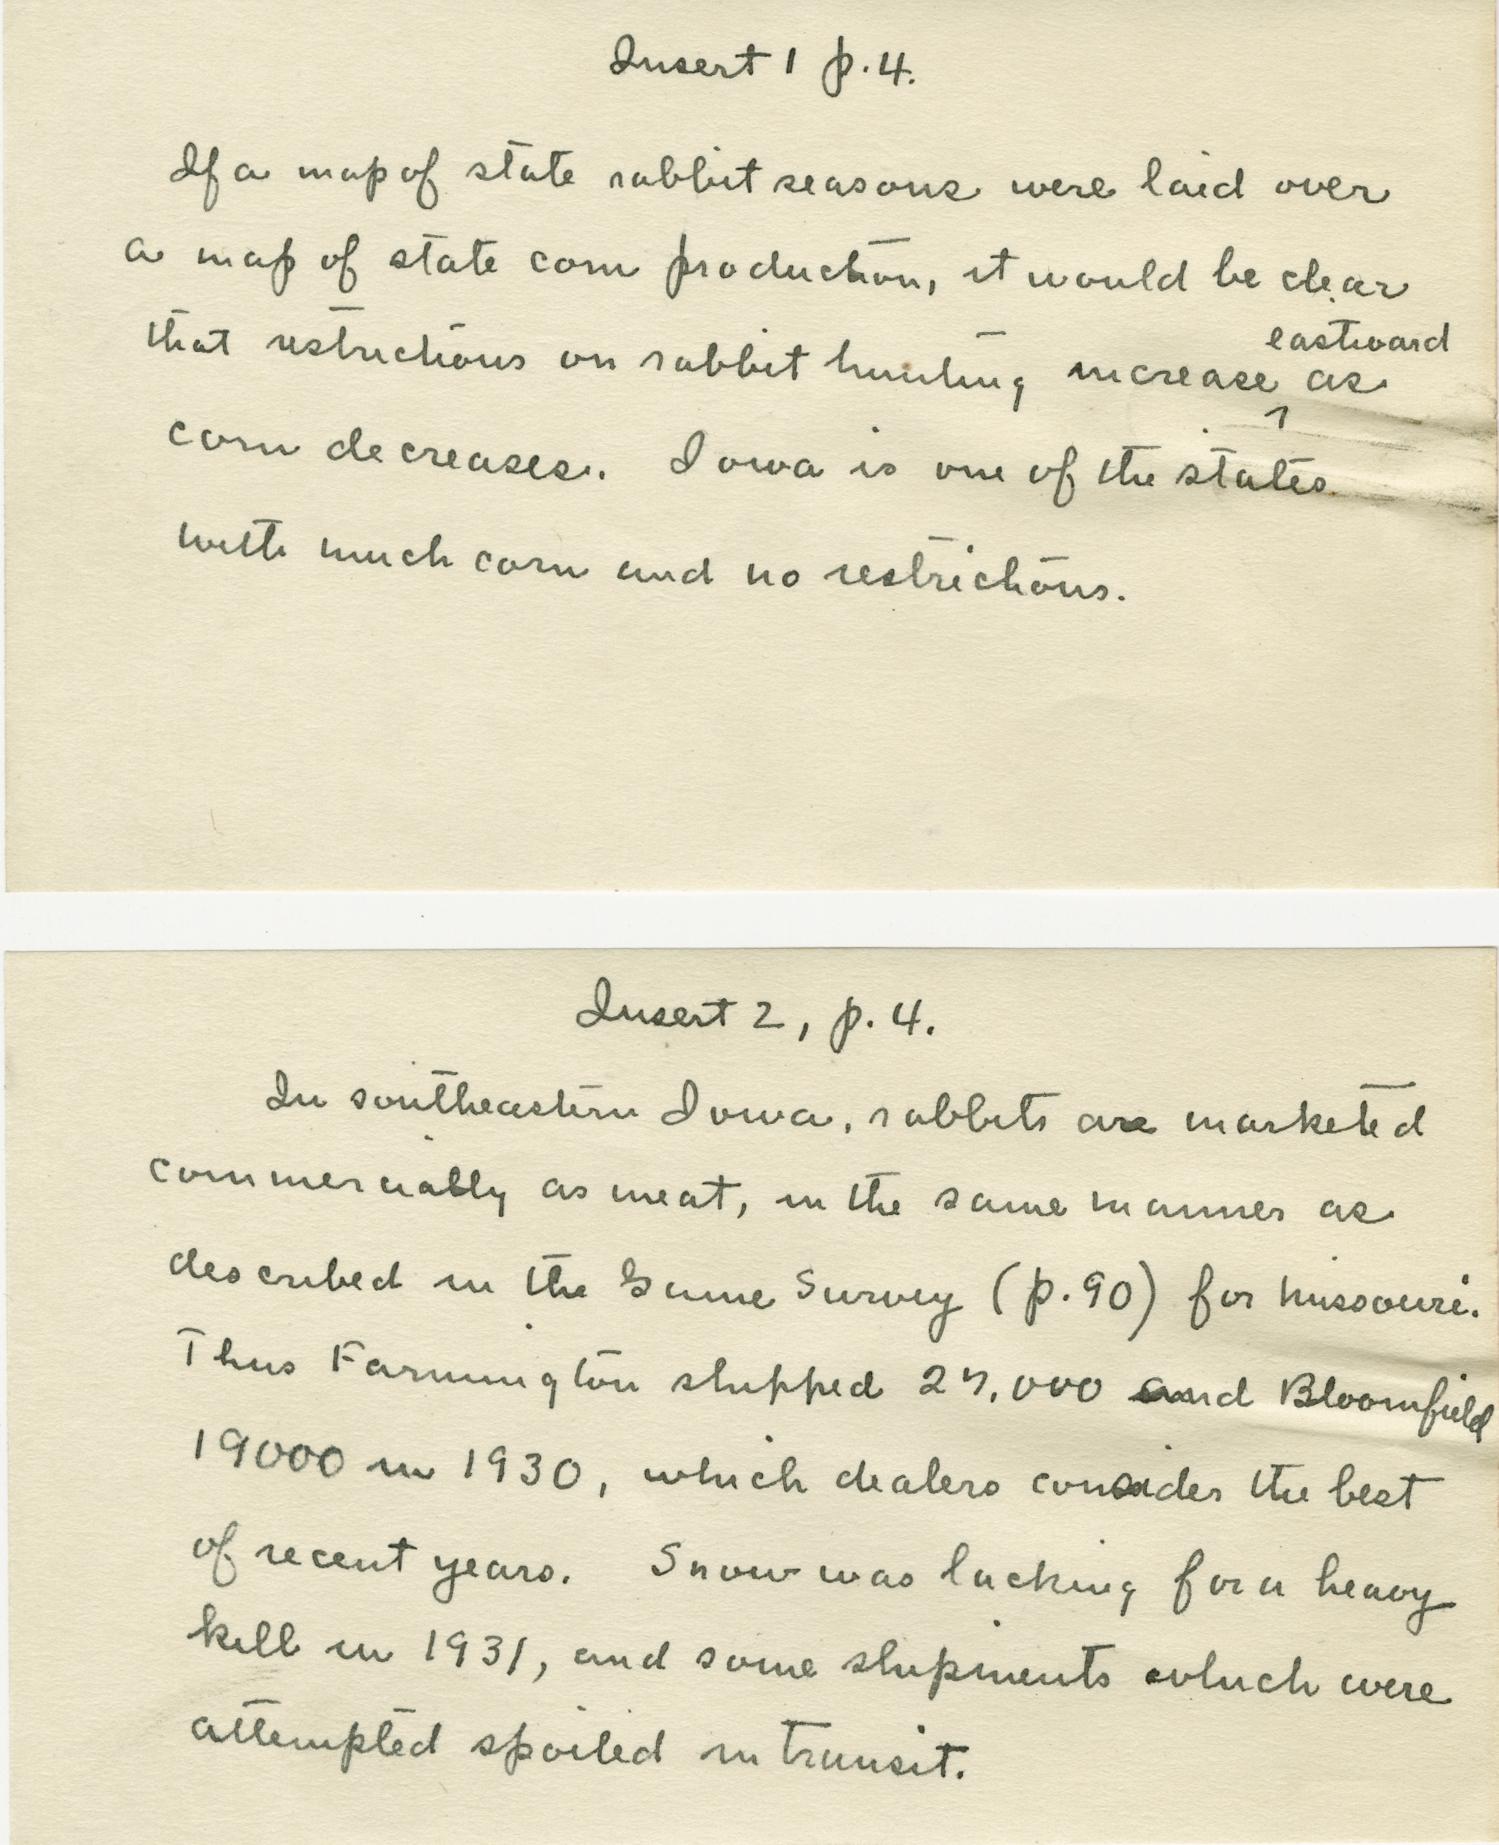 Insert 1 p.4.
If a map of state rabbit seasons were laid over
a map of state corn production, it would be clear
that restrictions on rabbit hunting increase eastward as
corn decreases. Iowa is one of the states
with much corn and no restrictions.
Insert 2, p. 4.
In southeastern Iowa, rabbits are marketed
commercially as meat, in the same manner as
described in the Game Survey (p.90) for Missouri.
Thus Farmington shipped 27,000 and Bloomfield
19000 in 1930, which dealers consider the best
of recent years. Snow was lacking for a heavy
kill in 1931, and some shipments which were
attempted spoiled in transit.